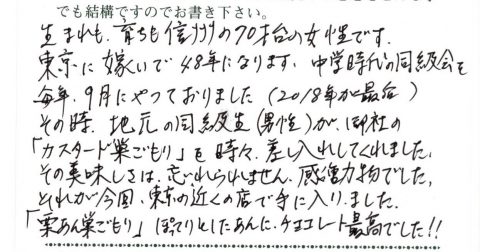 でも結構ですのでお書き下さい。
生まれも、育ちも信州の70才台の女性です。
東京に嫁いで48年になります、中学時代の同級会を
毎年、9月にやっておりました(2018年が最后)
その時、地元の同級生(男性)が、御社の
「カスタード巣ごもり」を時々、差し入れしてくれました、
その美味しさは、忘れられません、感激物でした、
それが今回、東京の近くの店で手に入りました。
「栗あん巣ごもり」ぽってりとしたあんに、チョコレート最高でした!!